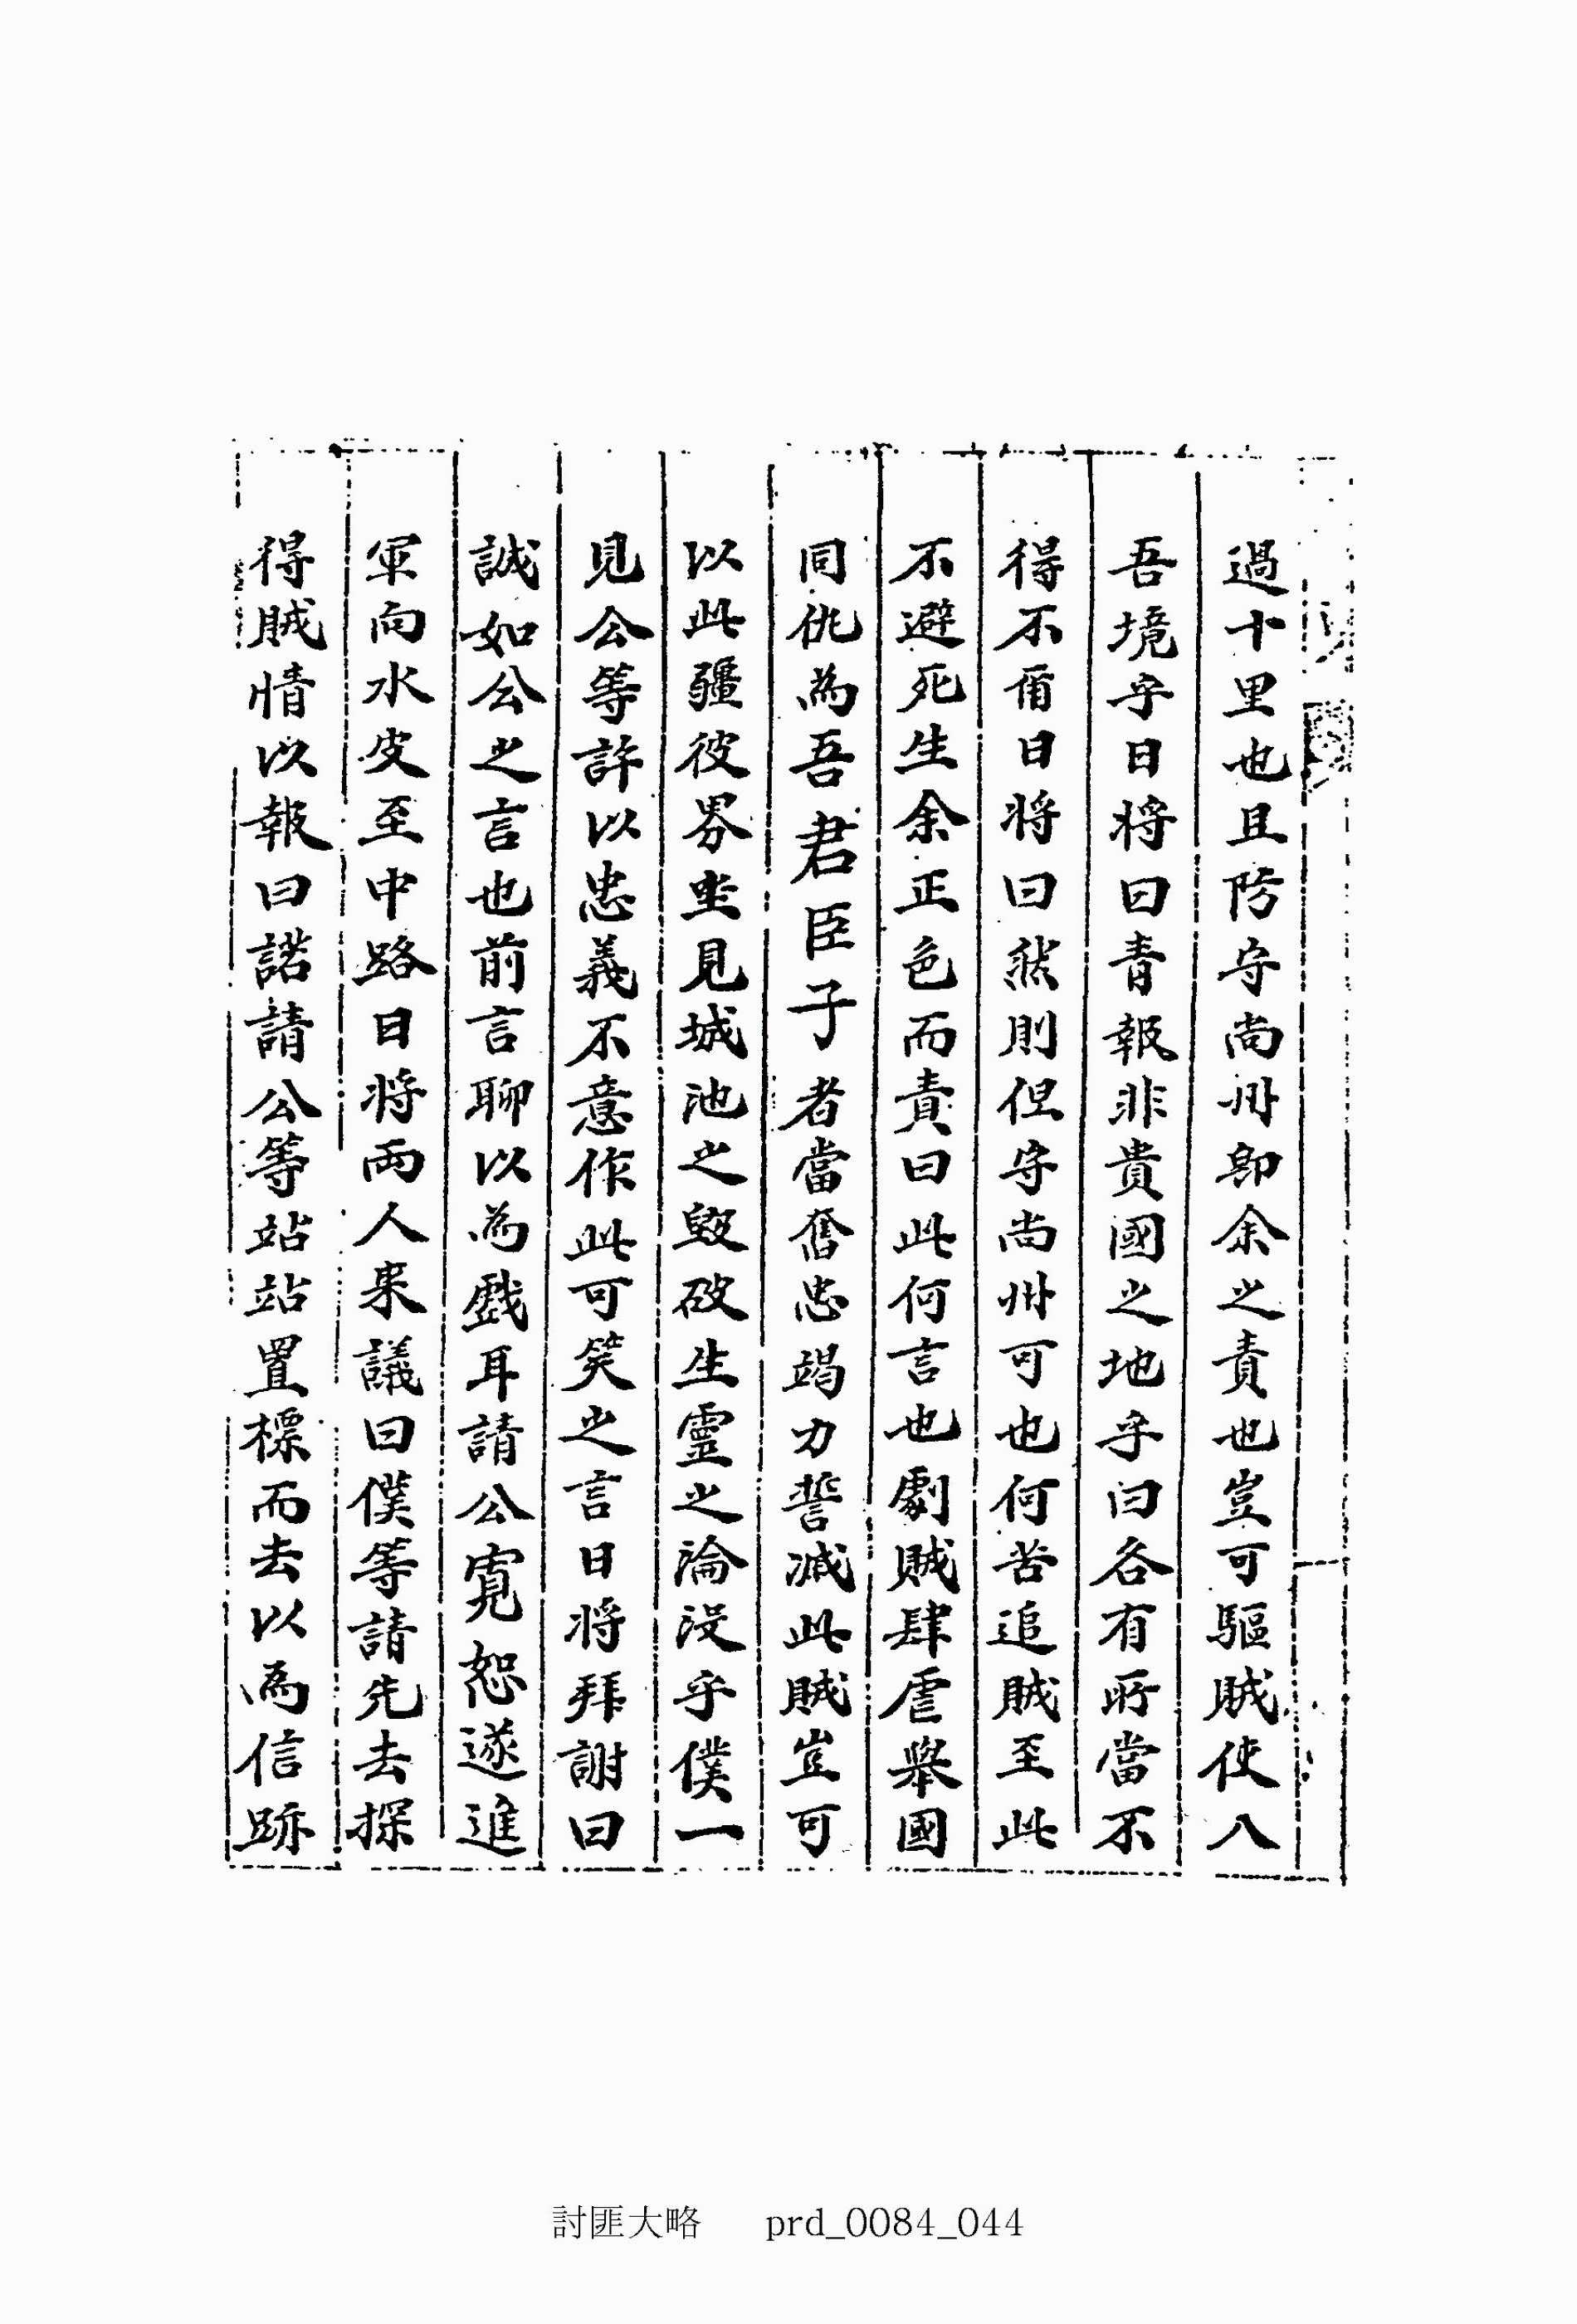 過十里也且防守尚州卽余之責也豈可驅賊使入
吾境乎日將曰靑報非貴國之地乎曰各有所當不
得不爾日將曰然則但守尚州可也何苦追賊至此
不避死生余正色而責曰此何言也劇賊肆虐擧國
同仇爲吾君臣子者當奮忠竭力誓滅此賊豈可
以此疆彼界坐見城池之毀破生靈之淪没乎僕一
見公等許以忠義不意作此可笑之言日將拜謝曰
誠如公之言也前言聊以爲戲耳請公寬恕遂進
軍向水皮至中路日將兩人来議曰僕等請先去探
得賊情以報曰諾請公等站站置標而去以爲信跡
討匪大略 prd_0084_044